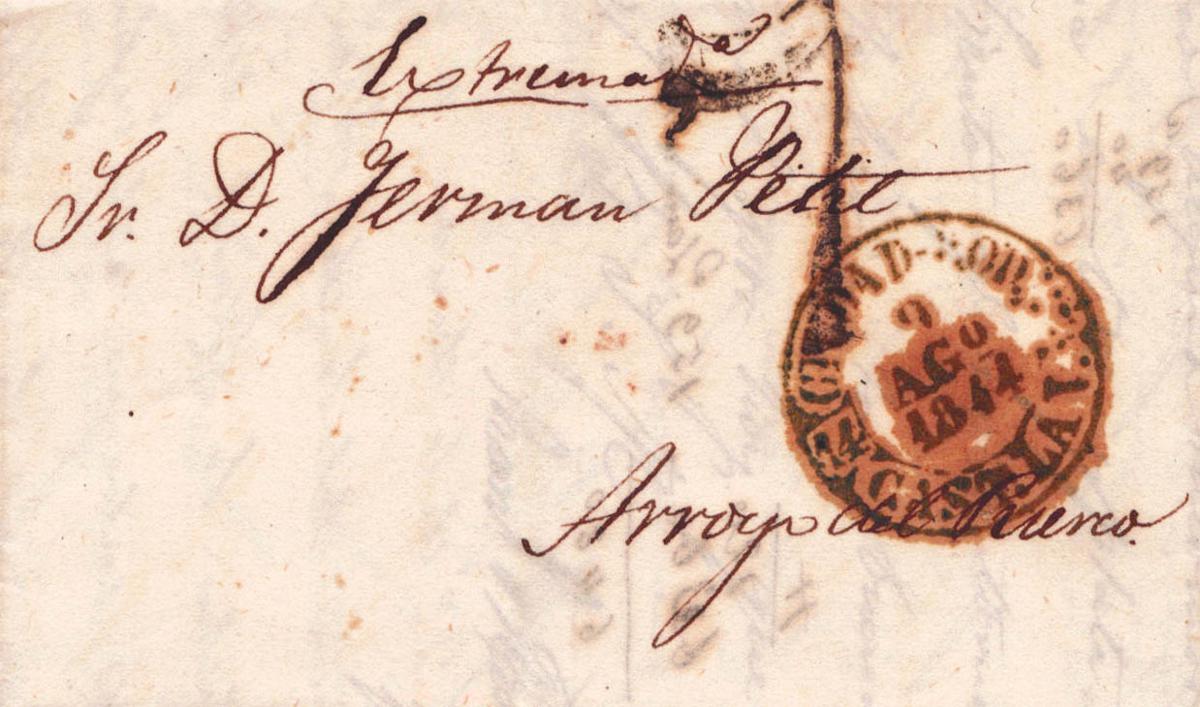 Extremada
Sr. D. Jerman Petit
CIUDAD-ROD.
2
AGO
1844
CAST. LA V.
Arroyo del Puerco.